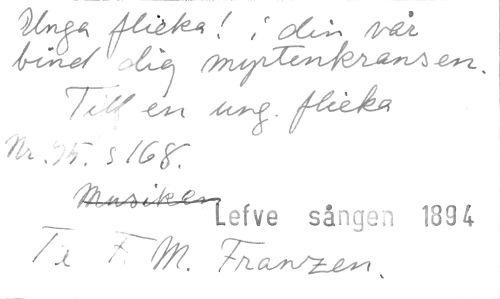 Unga flicka! i din vår
bind dig myrtenkransen.
Till en ung. flicka
Nr. 95. s 168.
Musiken
Lefve sången 1894
Te F. M. Franzen.